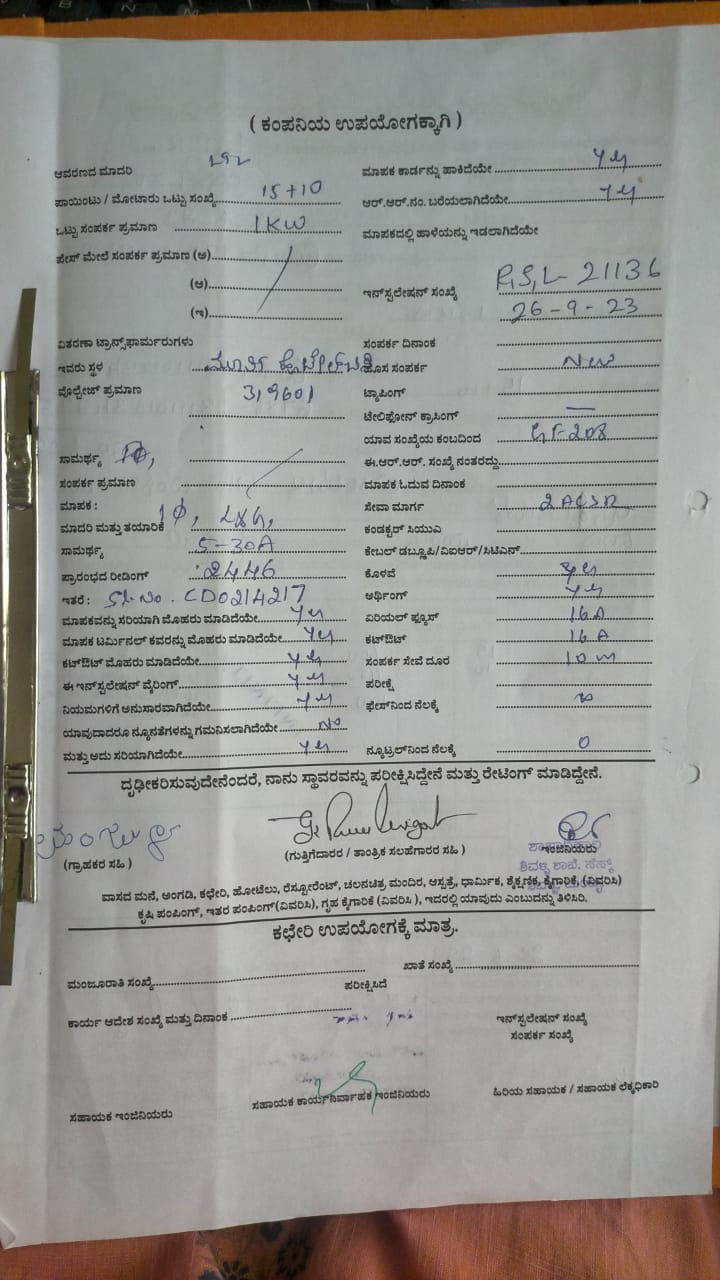 ( ಕಂಪನಿಯ ಉಪಯೋಗಕ್ಕಾಗಿ )
ಆವರಣದ ಮಾದರಿ
ಪಾಯಿಂಟು / ಮೋಟಾರು ಒಟ್ಟು ಸಂಖ್ಯೆ 15+10
ಒಟ್ಟು ಸಂಪರ್ಕ ಪ್ರಮಾಣ 1KW
ಪೇಸ್ ಮೇಲೆ ಸಂಪರ್ಕ ಪ್ರಮಾಣ (ಅ)
(ಆ)
(ಇ)
ವಿತರಣಾ ಟ್ರಾನ್ಸ್‌ಫಾರ್ಮರುಗಳು
ಇವರು ಸ್ಥಳ
ವೊಲ್ಟೇಜ್ ಪ್ರಮಾಣ 319601
ಸಾಮರ್ಥ್ಯ
ಸಂಪರ್ಕ ಪ್ರಮಾಣ
ಮಾಪಕ :
ಮಾದರಿ ಮತ್ತು ತಯಾರಿಕೆ 1Φ, L&G,
ಸಾಮರ್ಥ್ಯ 5-30A
ಪ್ರಾರಂಭದ ರೀಡಿಂಗ್ 2446
ಇತರೆ : Sl.No. CD0214217
ಮಾಪಕವನ್ನು ಸರಿಯಾಗಿ ಮೊಹರು ಮಾಡಿದೆಯೇ Yes
ಮಾಪಕ ಟರ್ಮಿನಲ್ ಕವರನ್ನು ಮೊಹರು ಮಾಡಿದೆಯೇ Yes
ಕಟ್‌ಔಟ್ ಮೊಹರು ಮಾಡಿದೆಯೇ Yes
ಈ ಇನ್‌ಸ್ಟಲೇಷನ್ ವೈರಿಂಗ್ Yes
ನಿಯಮಗಳಿಗೆ ಅನುಸಾರವಾಗಿದೆಯೇ Yes
ಯಾವುದಾದರೂ ನ್ಯೂನತೆಗಳನ್ನು ಗಮನಿಸಲಾಗಿದೆಯೇ No
ಮತ್ತು ಅದು ಸರಿಯಾಗಿದೆಯೇ Yes
ಮಾಪಕ ಕಾರ್ಡನ್ನು ಹಾಕಿದೆಯೇ Yes
ಆರ್.ಆರ್.ನಂ. ಬರೆಯಲಾಗಿದೆಯೇ Yes
ಮಾಪಕದಲ್ಲಿ ಹಾಳೆಯನ್ನು ಇಡಲಾಗಿದೆಯೇ
ಇನ್‌ಸ್ಟಲೇಷನ್ ಸಂಖ್ಯೆ RSL-21136
26-9-23
ಸಂಪರ್ಕ ದಿನಾಂಕ
ಹೊಸ ಸಂಪರ್ಕ New
ಟ್ಯಾಪಿಂಗ್
ಟೇಲಿಫೋನ್ ಕ್ರಾಸಿಂಗ್ —
ಯಾವ ಸಂಖ್ಯೆಯ ಕಂಬದಿಂದ
ಈ.ಆರ್.ಆರ್. ಸಂಖ್ಯೆ ನಂತರದ್ದು
ಮಾಪಕ ಓದುವ ದಿನಾಂಕ
ಸೇವಾ ಮಾರ್ಗ 2ACSR
ಕಂಡಕ್ಟರ್ ಸಿಯುಎ
ಕೇಬಲ್ ಡಬ್ಲ್ಯೂಪಿ/ವಿಐಆರ್/ಸಿಟಿಎಸ್
ಕೊಳವೆ Yes
ಅರ್ಥಿಂಗ್ Yes
ಏರಿಯಲ್ ಫ್ಯೂಸ್ 16A
ಕಟ್‌ಔಟ್ 16A
ಸಂಪರ್ಕ ಸೇವೆ ದೂರ 10m
ಪರೀಕ್ಷೆ
ಫೇಸ್‌ನಿಂದ ನೆಲಕ್ಕೆ ∞
ನ್ಯೂಟ್ರಲ್‌ನಿಂದ ನೆಲಕ್ಕೆ 0
ದೃಢೀಕರಿಸುವುದೇನೆಂದರೆ, ನಾನು ಸ್ಥಾವರವನ್ನು ಪರೀಕ್ಷಿಸಿದ್ದೇನೆ ಮತ್ತು ರೇಟಿಂಗ್ ಮಾಡಿದ್ದೇನೆ.
(ಗ್ರಾಹಕರ ಸಹಿ ) (ಗುತ್ತಿಗೆದಾರರ / ತಾಂತ್ರಿಕ ಸಲಹೆಗಾರರ ಸಹಿ ) ಇಂಜಿನಿಯರು
ವಾಸದ ಮನೆ, ಅಂಗಡಿ, ಕಛೇರಿ, ಹೋಟೆಲು, ರೆಸ್ಟೋರೆಂಟ್, ಚಲನಚಿತ್ರ ಮಂದಿರ, ಆಸ್ಪತ್ರೆ, ಧಾರ್ಮಿಕ, ಶೈಕ್ಷಣಿಕ, ಕೈಗಾರಿಕೆ, (ವಿವರಿಸಿ)
ಕೃಷಿ ಪಂಪಿಂಗ್, ಇತರ ಪಂಪಿಂಗ್(ವಿವರಿಸಿ), ಗೃಹ ಕೈಗಾರಿಕೆ (ವಿವರಿಸಿ ), ಇದರಲ್ಲಿ ಯಾವುದು ಎಂಬುದನ್ನು ತಿಳಿಸಿರಿ.
ಕಛೇರಿ ಉಪಯೋಗಕ್ಕೆ ಮಾತ್ರ.
ಮಂಜೂರಾತಿ ಸಂಖ್ಯೆ ಖಾತೆ ಸಂಖ್ಯೆ
ಪರೀಕ್ಷಿಸಿದೆ
ಕಾರ್ಯ ಆದೇಶ ಸಂಖ್ಯೆ ಮತ್ತು ದಿನಾಂಕ ಇನ್‌ಸ್ಟಲೇಷನ್ ಸಂಖ್ಯೆ
ಸಂಪರ್ಕ ಸಂಖ್ಯೆ
ಸಹಾಯಕ ಇಂಜಿನಿಯರು ಸಹಾಯಕ ಕಾರ್ಯನಿರ್ವಾಹಕ ಇಂಜಿನಿಯರು ಹಿರಿಯ ಸಹಾಯಕ / ಸಹಾಯಕ ಲೆಕ್ಕಾಧಿಕಾರಿ